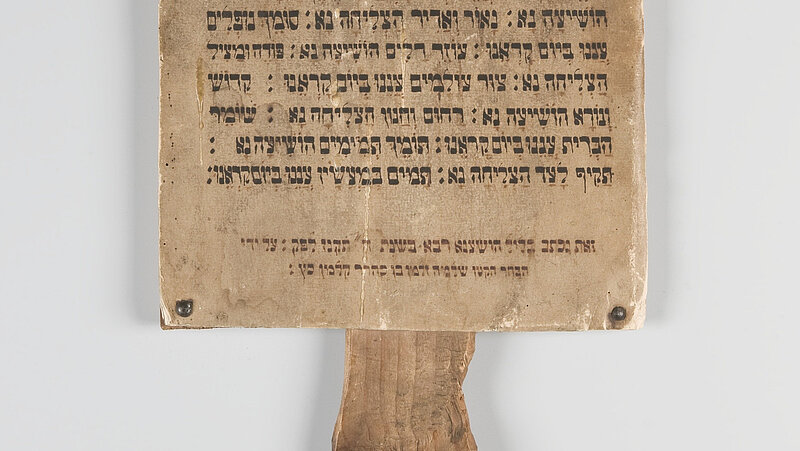 הושיעה נא : נאור ואדיר הצליחה נא : סומך נופלים
עננו ביום קראנו : עוזר דלים הושיעה נא : פודה ומציל
הצליחה נא : צור עולמים עננו ביום קראנו : קדוש
ונורא הושיעה נא : רחום וחנון הצליחה נא : שומר
הברית עננו ביום קראנו : תומך תמימים הושיעה נא :
תקיף לעד הצליחה נא : תמים במעשיו עננו ביום קראנו :
זאת נכתב בליל הושענא רבא בשנת לפק : על ידי
הקטן זלמן בן קלמן כץ :